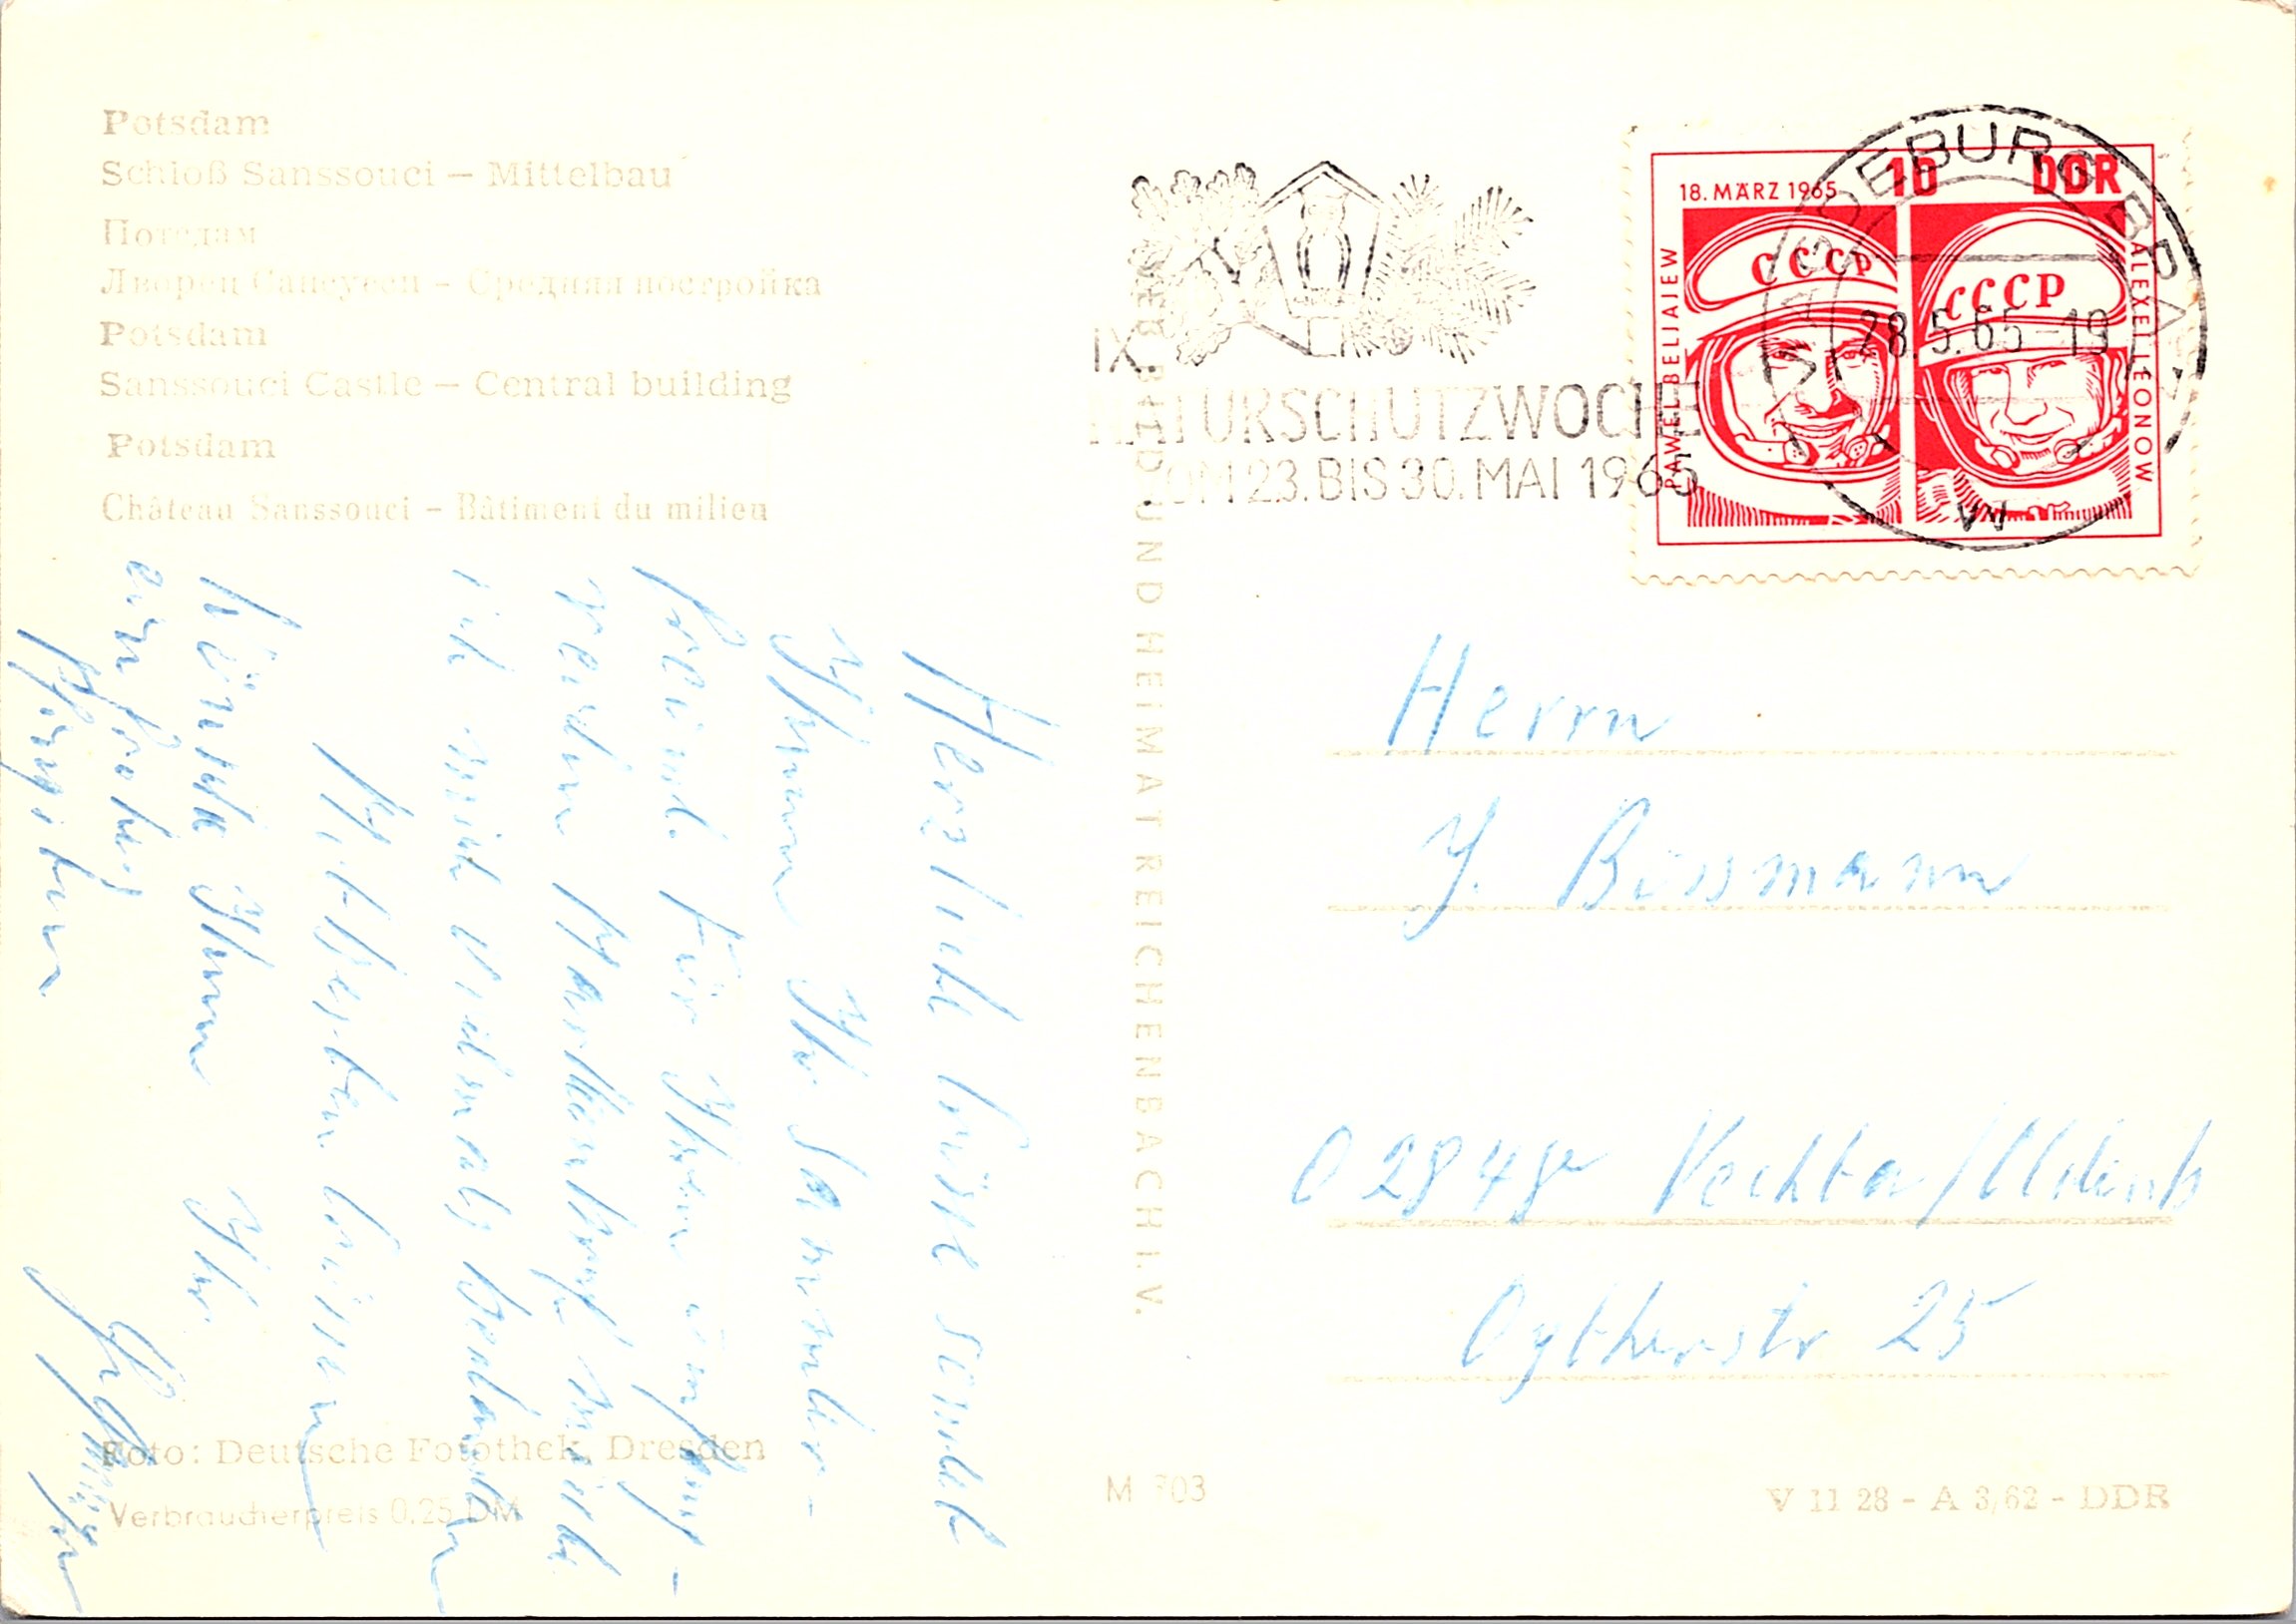 Potsdam
Schloß Sanssouci – Mittelbau
Потсдам
Дворец Сансуси – Средняя постройка
Potsdam
Sanssouci Castle – Central building
Potsdam
Château Sanssouci – Bâtiment du milieu
Herzliche Grüße sendet
Ihnen Ihr Sammler-
freund. Für Ihren
werden
ich mich vielmals bedanken
Mit besten Grüssen
Ihnen Ihr
Foto: Deutsche Fotothek, Dresden
Verbraucherpreis 0,25 DM
BILD UND HEIMAT REICHENBACH I. V.
M 303
V 11 28 - A 3/62 - DDR
IX.
NATURSCHUTZWOCHE
VOM 23. BIS 30. MAI 1965
18. MÄRZ 1965 10 DDR
PAWEL BELJAJEW
ALEXEJ LEONOW
CCCP
CCCP
28.5.65-19
Herrn
J. Büssmann
2848 Vechta/Oldenb
Oytherstr 25